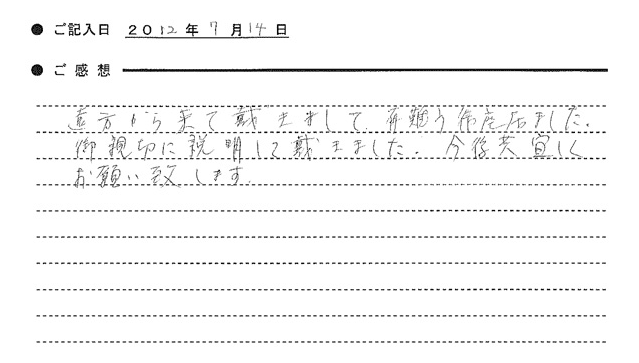 ● ご記入日 2012年7月14日
● ご感想
から来て戴きまして 有難う御座居ました。
御親切に説明して戴きました。今後共宜しく
お願い致します。